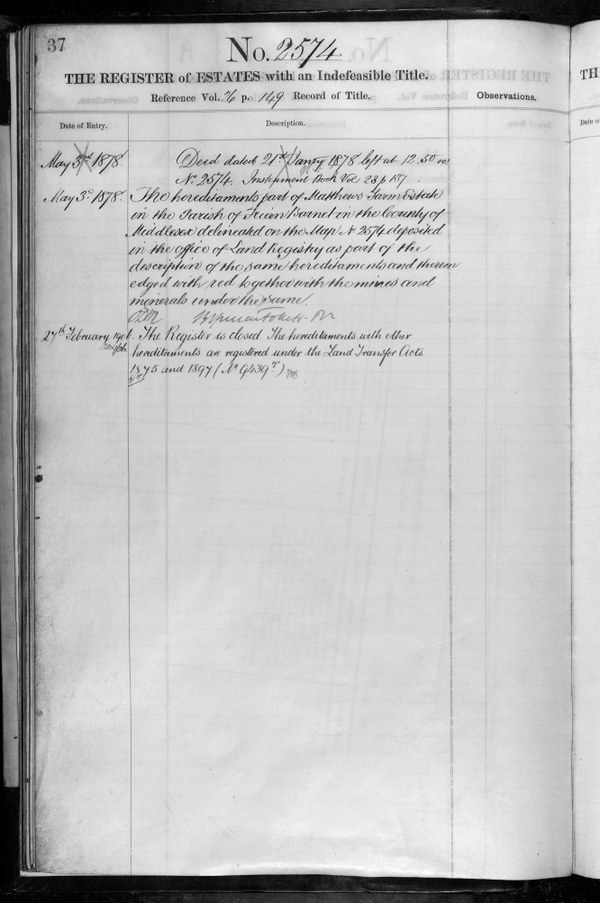 37
No. 2574
THE REGISTER of ESTATES with an Indefeasible Title.
Reference Vol. 26 p. 149 Record of Title.
Observations.
Date of Entry.
Description.
May 3rd 1878
Deed dated 21st Janry 1878 left at 12.50
No. 2574. Instrument Book Vol 28 p 187
May 3d 1878.
The hereditaments part of Matthews Farm Estate
in the Parish of Friern Barnet in the County of
Middlesex delineated on the Map No 2574 deposited
in the office of Land Registry as part of the
description of the same hereditaments and thereon
edged with red together with the mines and
minerals under the same.
27th February 1906
The Register is closed The hereditaments with other
hereditaments are registered under the Land Transfer Acts
1875 and 1897 (No 94397)
TH
Date of